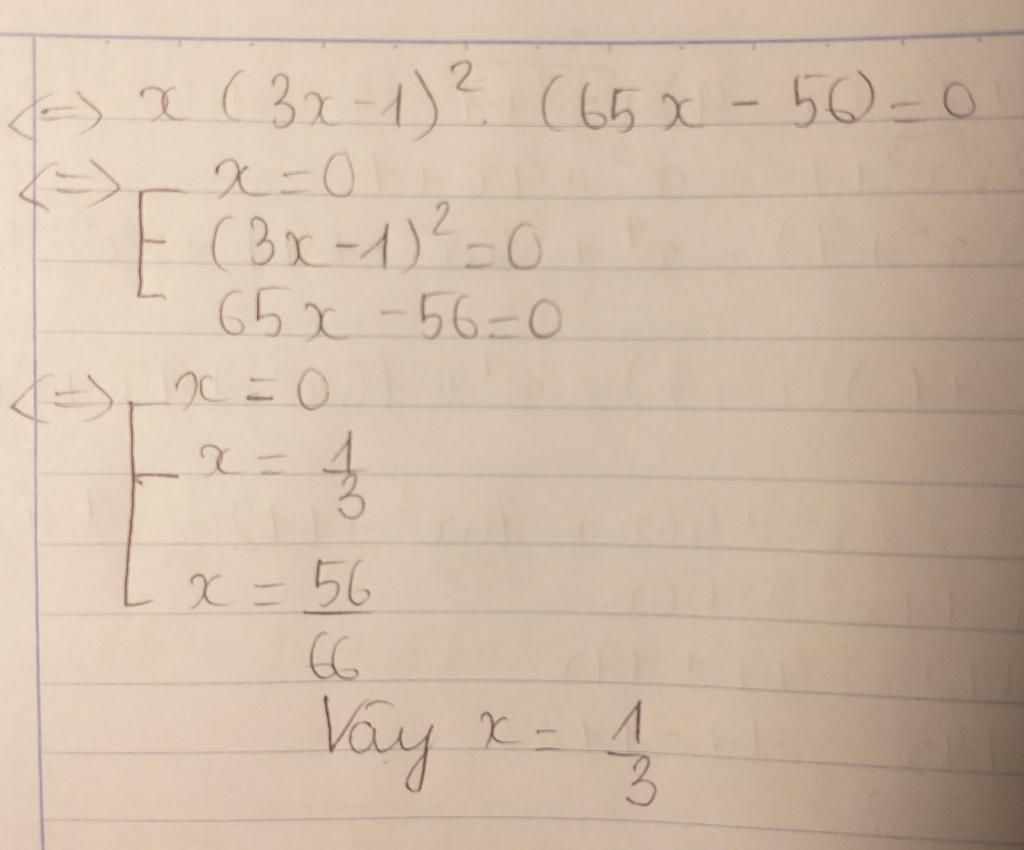 <=> x (3x-1)². (65x - 56) = 0
<=> [ x = 0
(3x-1)² = 0
65x - 56 = 0
<=> [ x = 0
x = 1/3
x = 56/66
Vậy x = 1/3